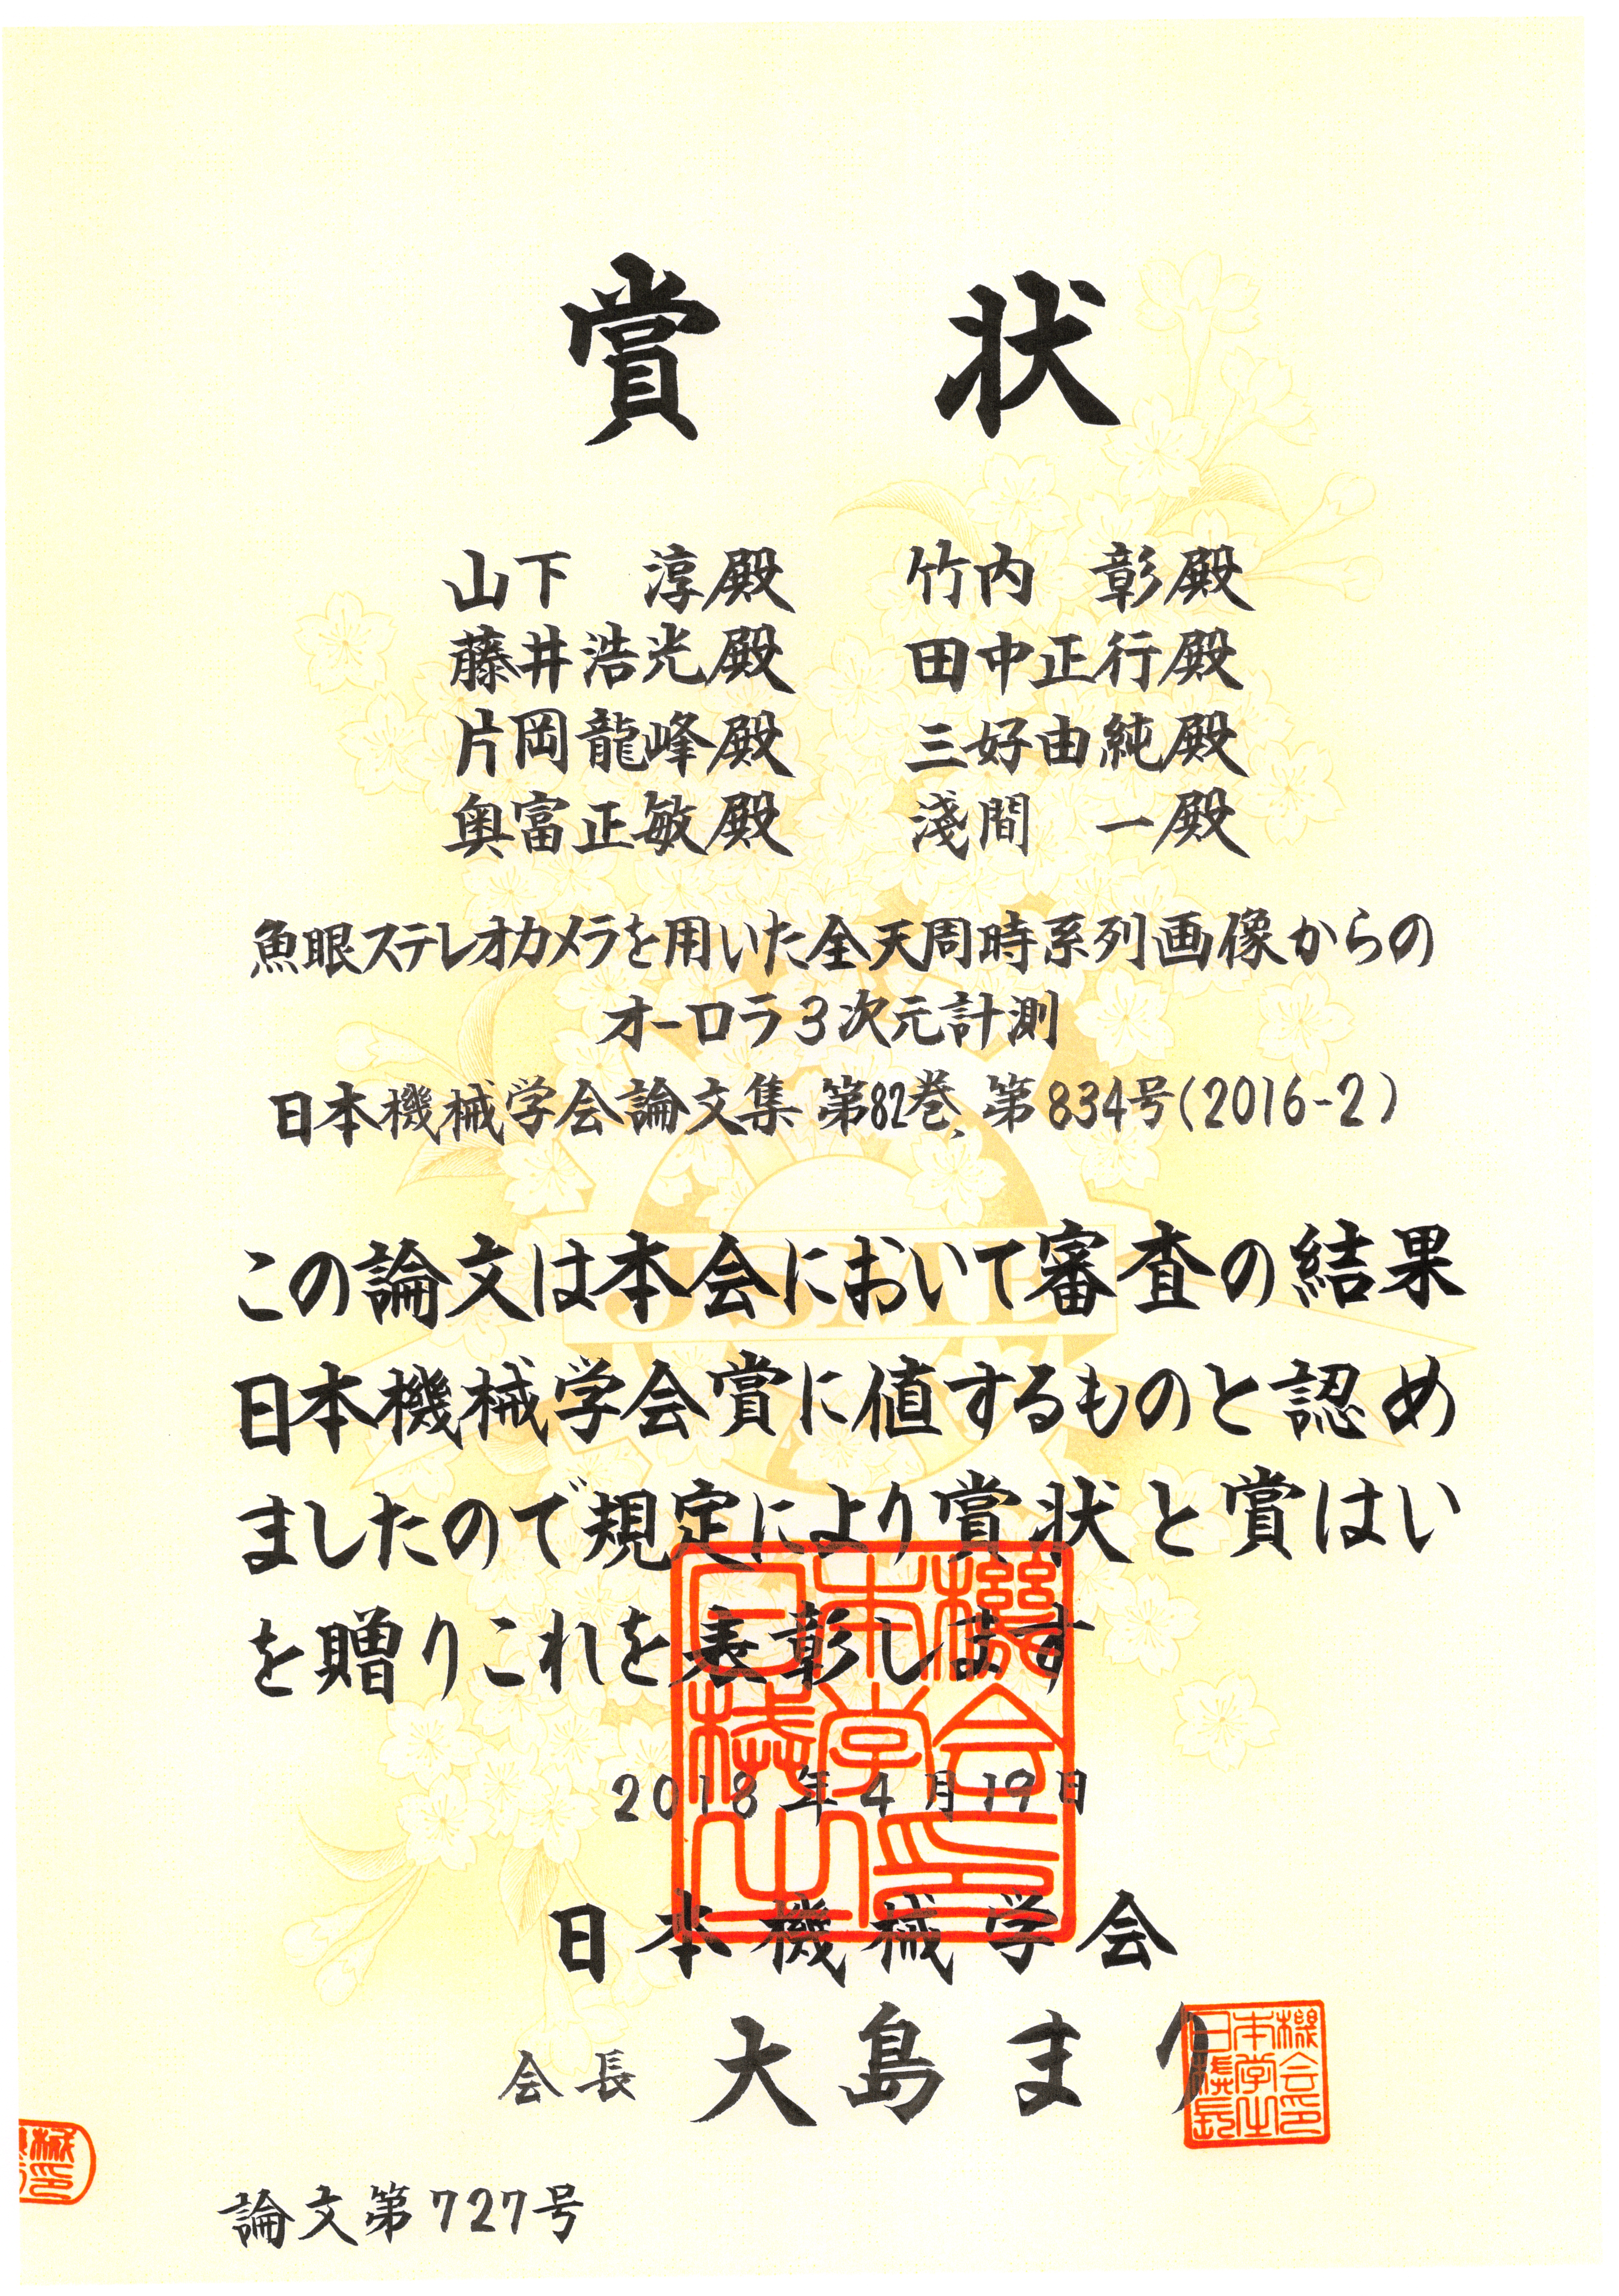 賞 状
山下 淳殿 竹内 彰殿
藤井浩光殿 田中正行殿
片岡龍峰殿 三好由純殿
奥富正敏殿 淺間 一殿
魚眼ステレオカメラを用いた全天周時系列画像からの
オーロラ3次元計測
日本機械学会論文集 第82巻、第834号(2016-2)
JSME
この論文は本会において審査の結果
日本機械学会賞に値するものと認め
ましたので規定により賞状と賞はい
を贈りこれを表彰します
2018年4月19日
日本機械学会
会長 大島まり
論文第727号